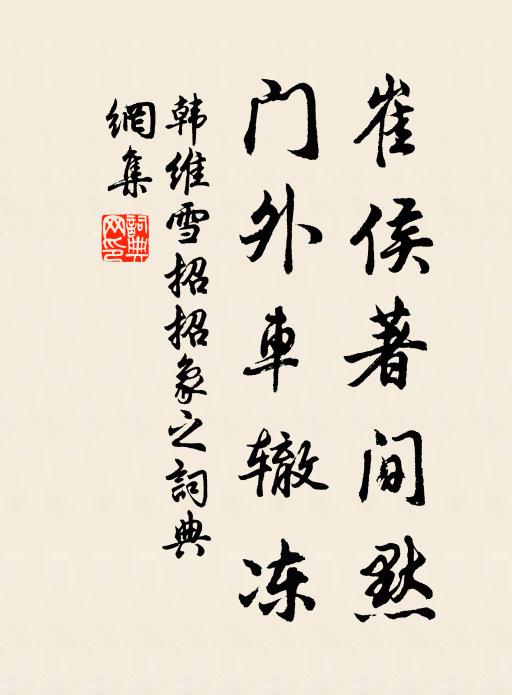 崔侯著间默
门外車辙冻
韩维雪招招象之詞典
網集
詞典網印